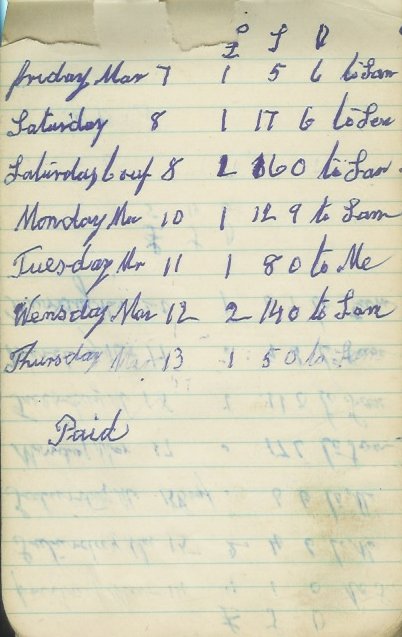 £ S D
Friday Mar 7 1 5 6 to Sam
Saturday 8 1 17 6 to Sam
Saturday 8 2 16 0 to Sam
Monday Mar 10 1 12 9 to Sam
Tuesday Mar 11 1 8 0 to Me
Wensday Mar 12 2 14 0 to Sam
Thursday Mar 13 1 5 0 to Sam
Paid